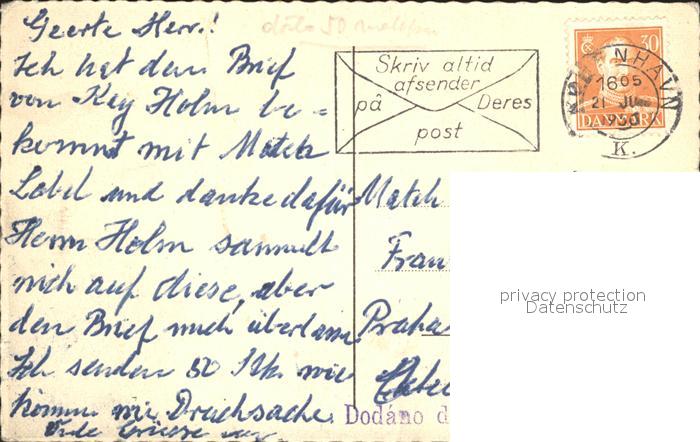 Geerte Herr.!
Ich hat den Brief
von Kay Holm be=
kommt mit Match
Label und danke dafür
Herrn Holm sammelt
nich auf diese, aber
den Brief mich
Ich senden 50 Stk wie
kommen wie Drucksache.
Skriv altid
afsender
på Deres
post
30
KØBENHAVN
16 05
21 JU
DANMARK
K.
Match
Fran
Praha
Dodáno d
privacy protection
Datenschutz